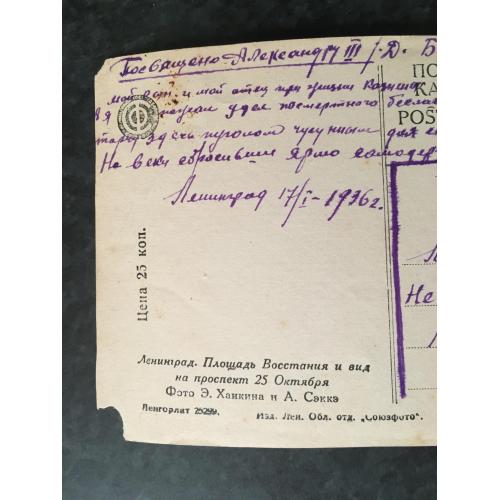 Посвящено Александру III /Д. Б
ПО
КА
POST
мой сын и мой отец при жизни казнены
а я пожал удел посмертного бесслав
торчу здесь пугалом чугунным для
На век сбросившей ярмо самодер
Ленинград 17/I-1936г.
Не
Цена 25 коп.
Ленинград. Площадь Восстания и вид
на проспект 25 Октября
Фото Э. Хаикина и А. Сэккэ
Ленгорлит 25299.
Изд. Лен. Обл. отд. „Союзфото".